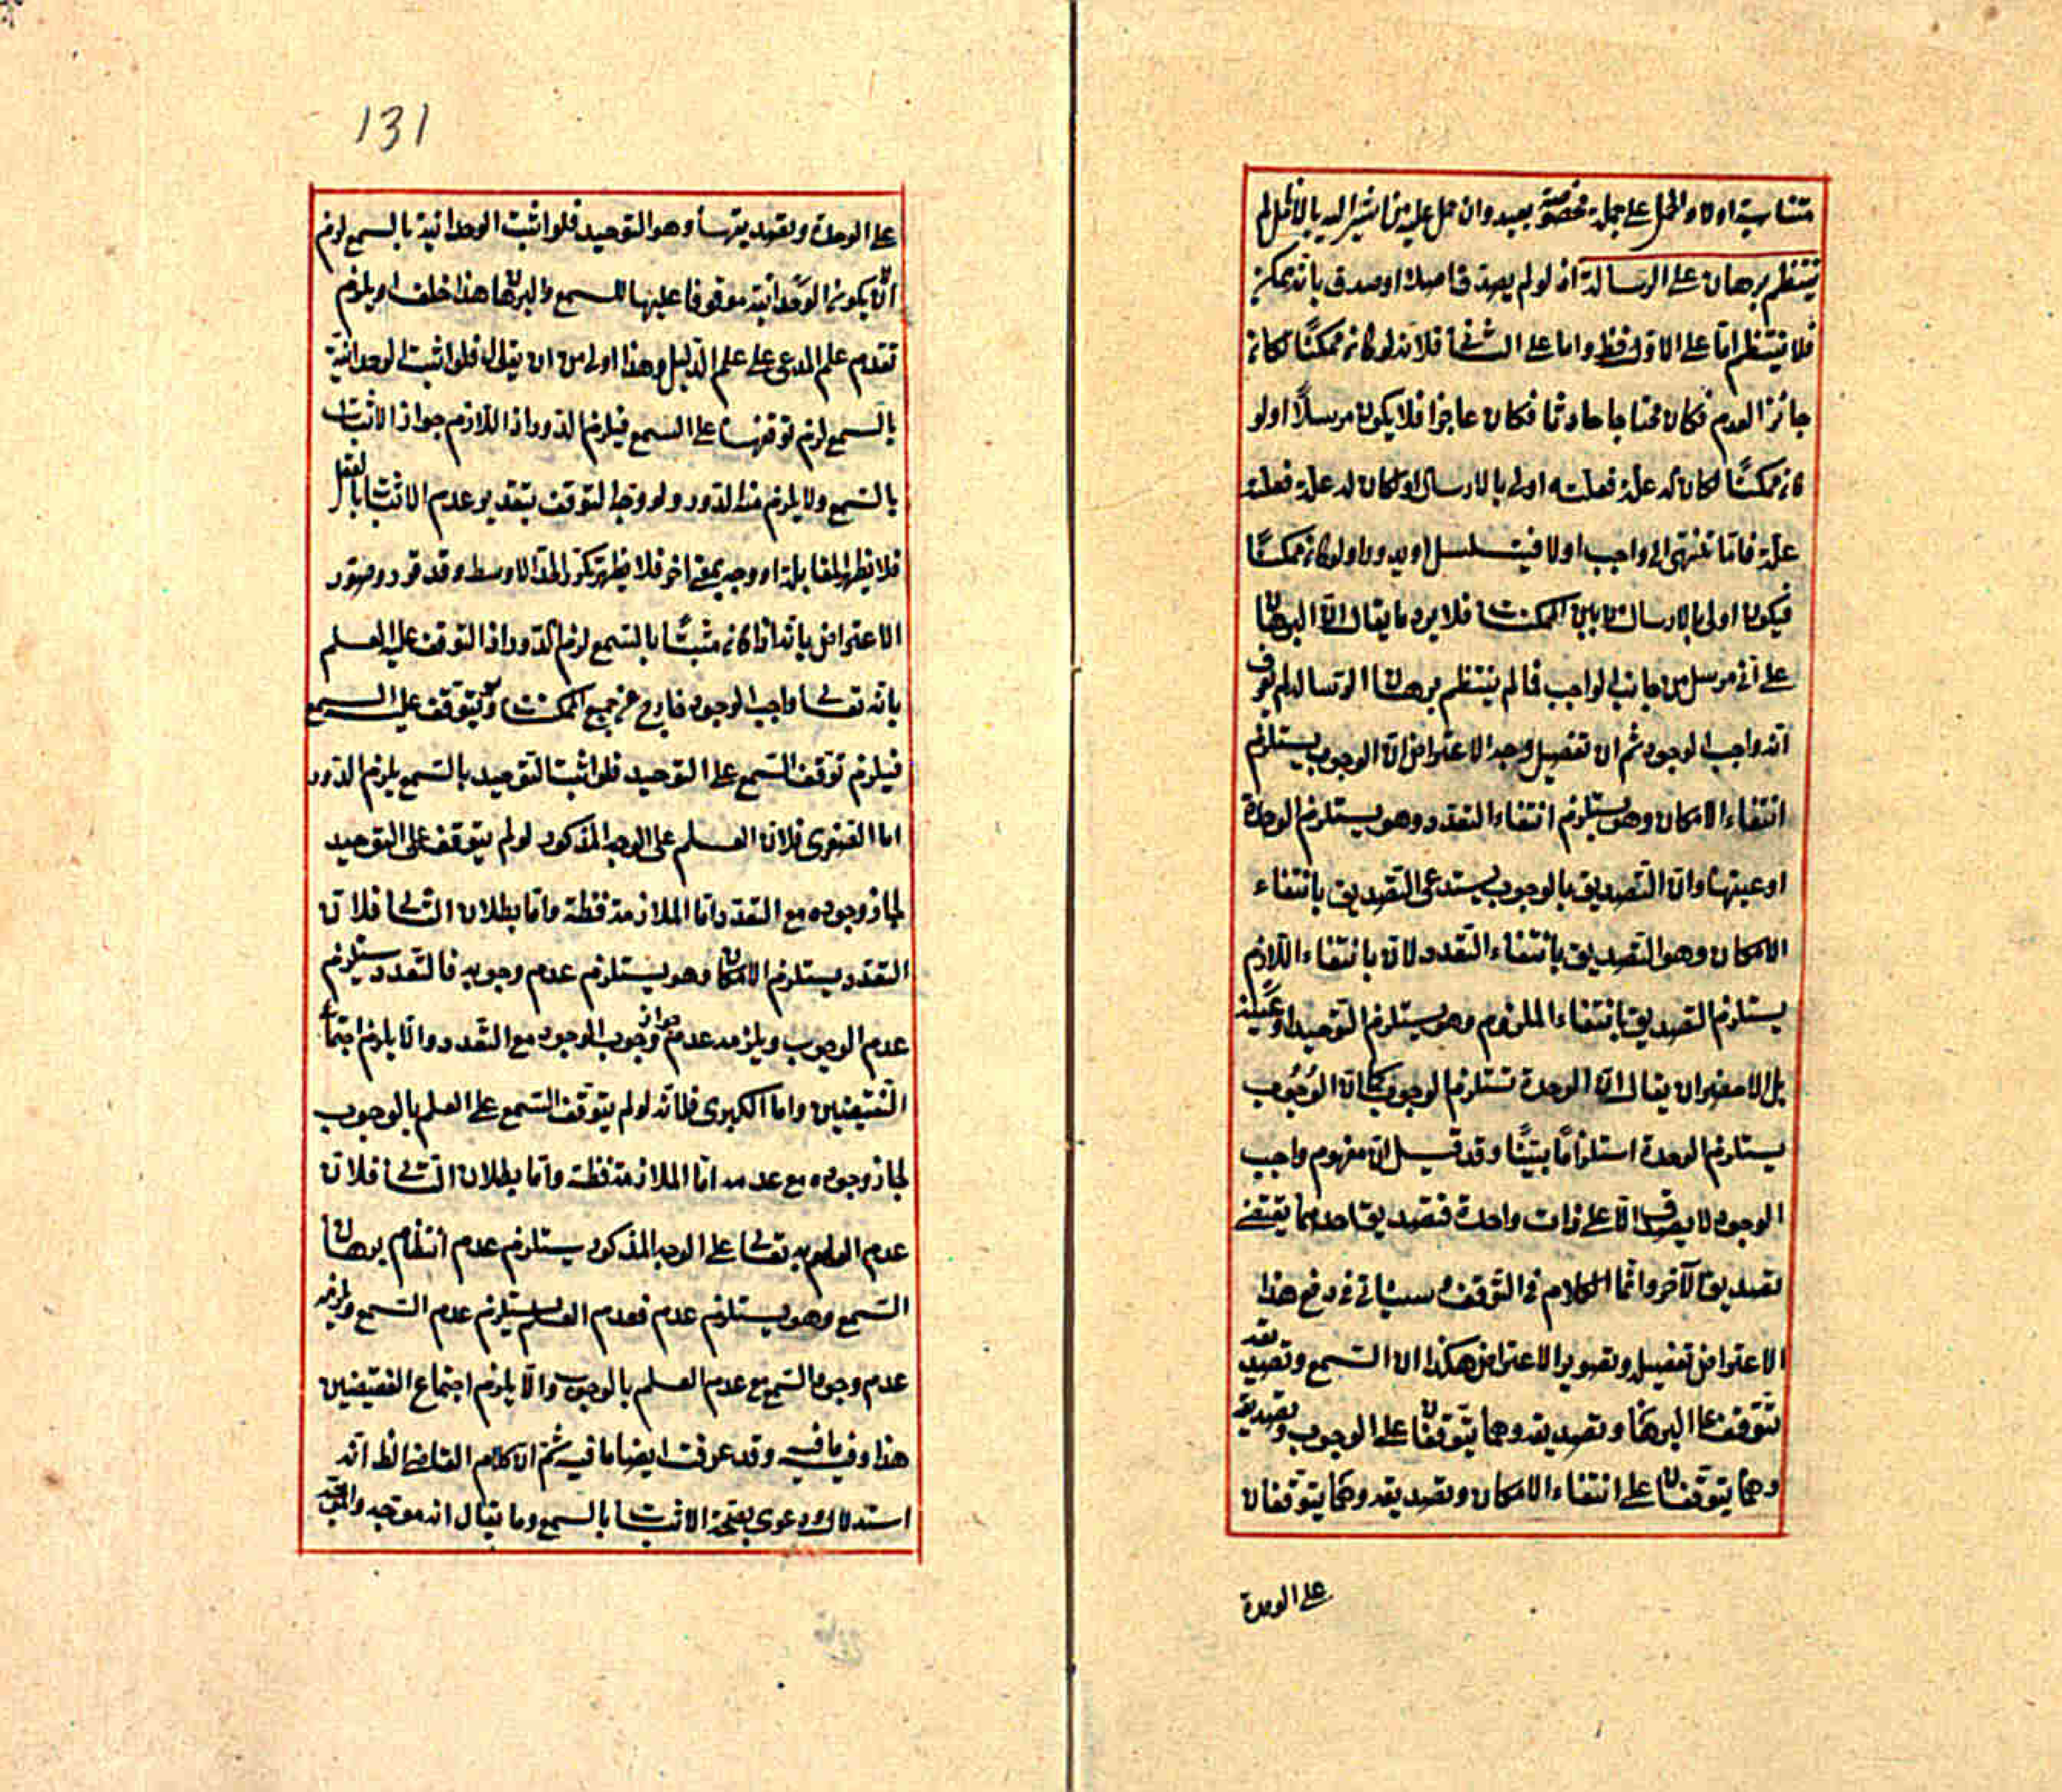 متناسبة اولا والحمل على جملة مخصوصة بعيد وان حمل عليه من اشير اليه بالاظل لم
ينتظم برهان على الرسالة اذ لو لم يصدق اصلا او صدق بانه ممكن
فلا ينتظم اما على الاول فظ واما على الثانى فلانه لو كان ممكنًا لكان
جائز العدم فكان محتاجا حادثا فكان عاجزا فلا يكون مرسلًا او لو
كان ممكنًا لكان له علة فعلته اولى بالارسال او لكان له علة فعلة
علة فاما تنتهى الى واجب اولا فيتسلسل او يدور او لو كان ممكنًا
فيكون اولى بالارسال من بين الممكنات فلا يرد ما يقال ان البرهان
على انى مرسل من جانب الواجب فما لم ينتظم برهان الرسالة لم يعرف
انه واجب الوجود ثم ان تفصيل وجه الاعتراض ان الوجوب يستلزم
انتفاء الامكان وهو يستلزم انتفاء التعدد وهو يستلزم الوحدة
او عينها وان التصديق بالوجوب يستدعى التصديق بانتفاء
الامكان وهو التصديق بانتفاء التعدد لان بانتفاء اللازم
يستلزم التصديق بانتفاء الملزوم وهو يستلزم التوحيد او عينه
بل الامضهر ان يقال ان الوحدة تستلزم الوجوب كما ان الوجوب
يستلزم الوحدة استلزامًا بينًا وقد قيل ان مفهوم واجب
الوجود لا يصدق الا على ذات واحدة فتصديق احدهما يقتضى
تصديق الآخر وانما الكلام فى التوقف وسيأتى فى دفع هذا
الاعتراض تفصيل وتصوير الاعتراض هكذا ان السمع وتصديقه
يتوقف على البرهان وتصديقه وهما يتوقفان على الوجوب وتصديقه
وهما يتوقفان على انتفاء الامكان وتصديقه وهما يتوقفان
على الوحدة
131
على الوحدة وتصديقها وهو التوحيد فلو اثبت الوحدانية بالسمع لزم
ان لا يكون الوحدانية موقوفا عليها للسمع والبرهان هذا خلف او يلزم
تقدم علم المدعى على علم الدليل وهذا اولى من ان يقال فلو اثبت الوحدانية
بالسمع لزم توقفها على السمع فيلزم الدور اذ اللازم جواز الاثبات
بالسمع ولا يلزم منه الدور ولو وجه التوقف بتقدير عدم الاثبات بالعقل
فلا يظهر المقابلة او وجه بمعنى اخر فلا يظهر تكرر الحد الاوسط وقد قرر وصور
الاعتراض بانه اذا كان مثبتًا بالسمع لزم الدور اذ التوقف عليه العلم
بانه تعالى واجب الوجود خارج عن جميع الممكنات ويتوقف عليه السمع
فيلزم توقف السمع على التوحيد فلو اثبت التوحيد بالسمع يلزم الدور
اما الصغرى فلان العلم على الوجه المذكور لو لم يتوقف على التوحيد
لجاز وجوده مع التعدد اما الملازمة فظة واما بطلان التالى فلان
التعدد يستلزم الامكان وهو يستلزم عدم وجوبه فالتعدد يستلزم
عدم الوجوب ويلزمه عدم جواز وجوب الوجود مع التعدد والا يلزم اجتماع
النقيضين واما الكبرى فلانه لو لم يتوقف السمع على العلم بالوجوب
لجاز وجوده مع عدمه اما الملازمة فظة واما بطلان التالى فلان
عدم العلم به تعالى على الوجه المذكور يستلزم عدم انتظام برهان
السمع وهو يستلزم عدم فعدم العلم يستلزم عدم السمع ويلزمه
عدم وجود السمع مع عدم العلم بالوجوب والا يلزم اجتماع النقيضين
هذا وفيه ما فيه وقد عرفت ايضا ما فيه ثم ان كلام الفاضل الظ انه
استدلال ودعوى بصحة الاثبات بالسمع وما يقال انه موحد